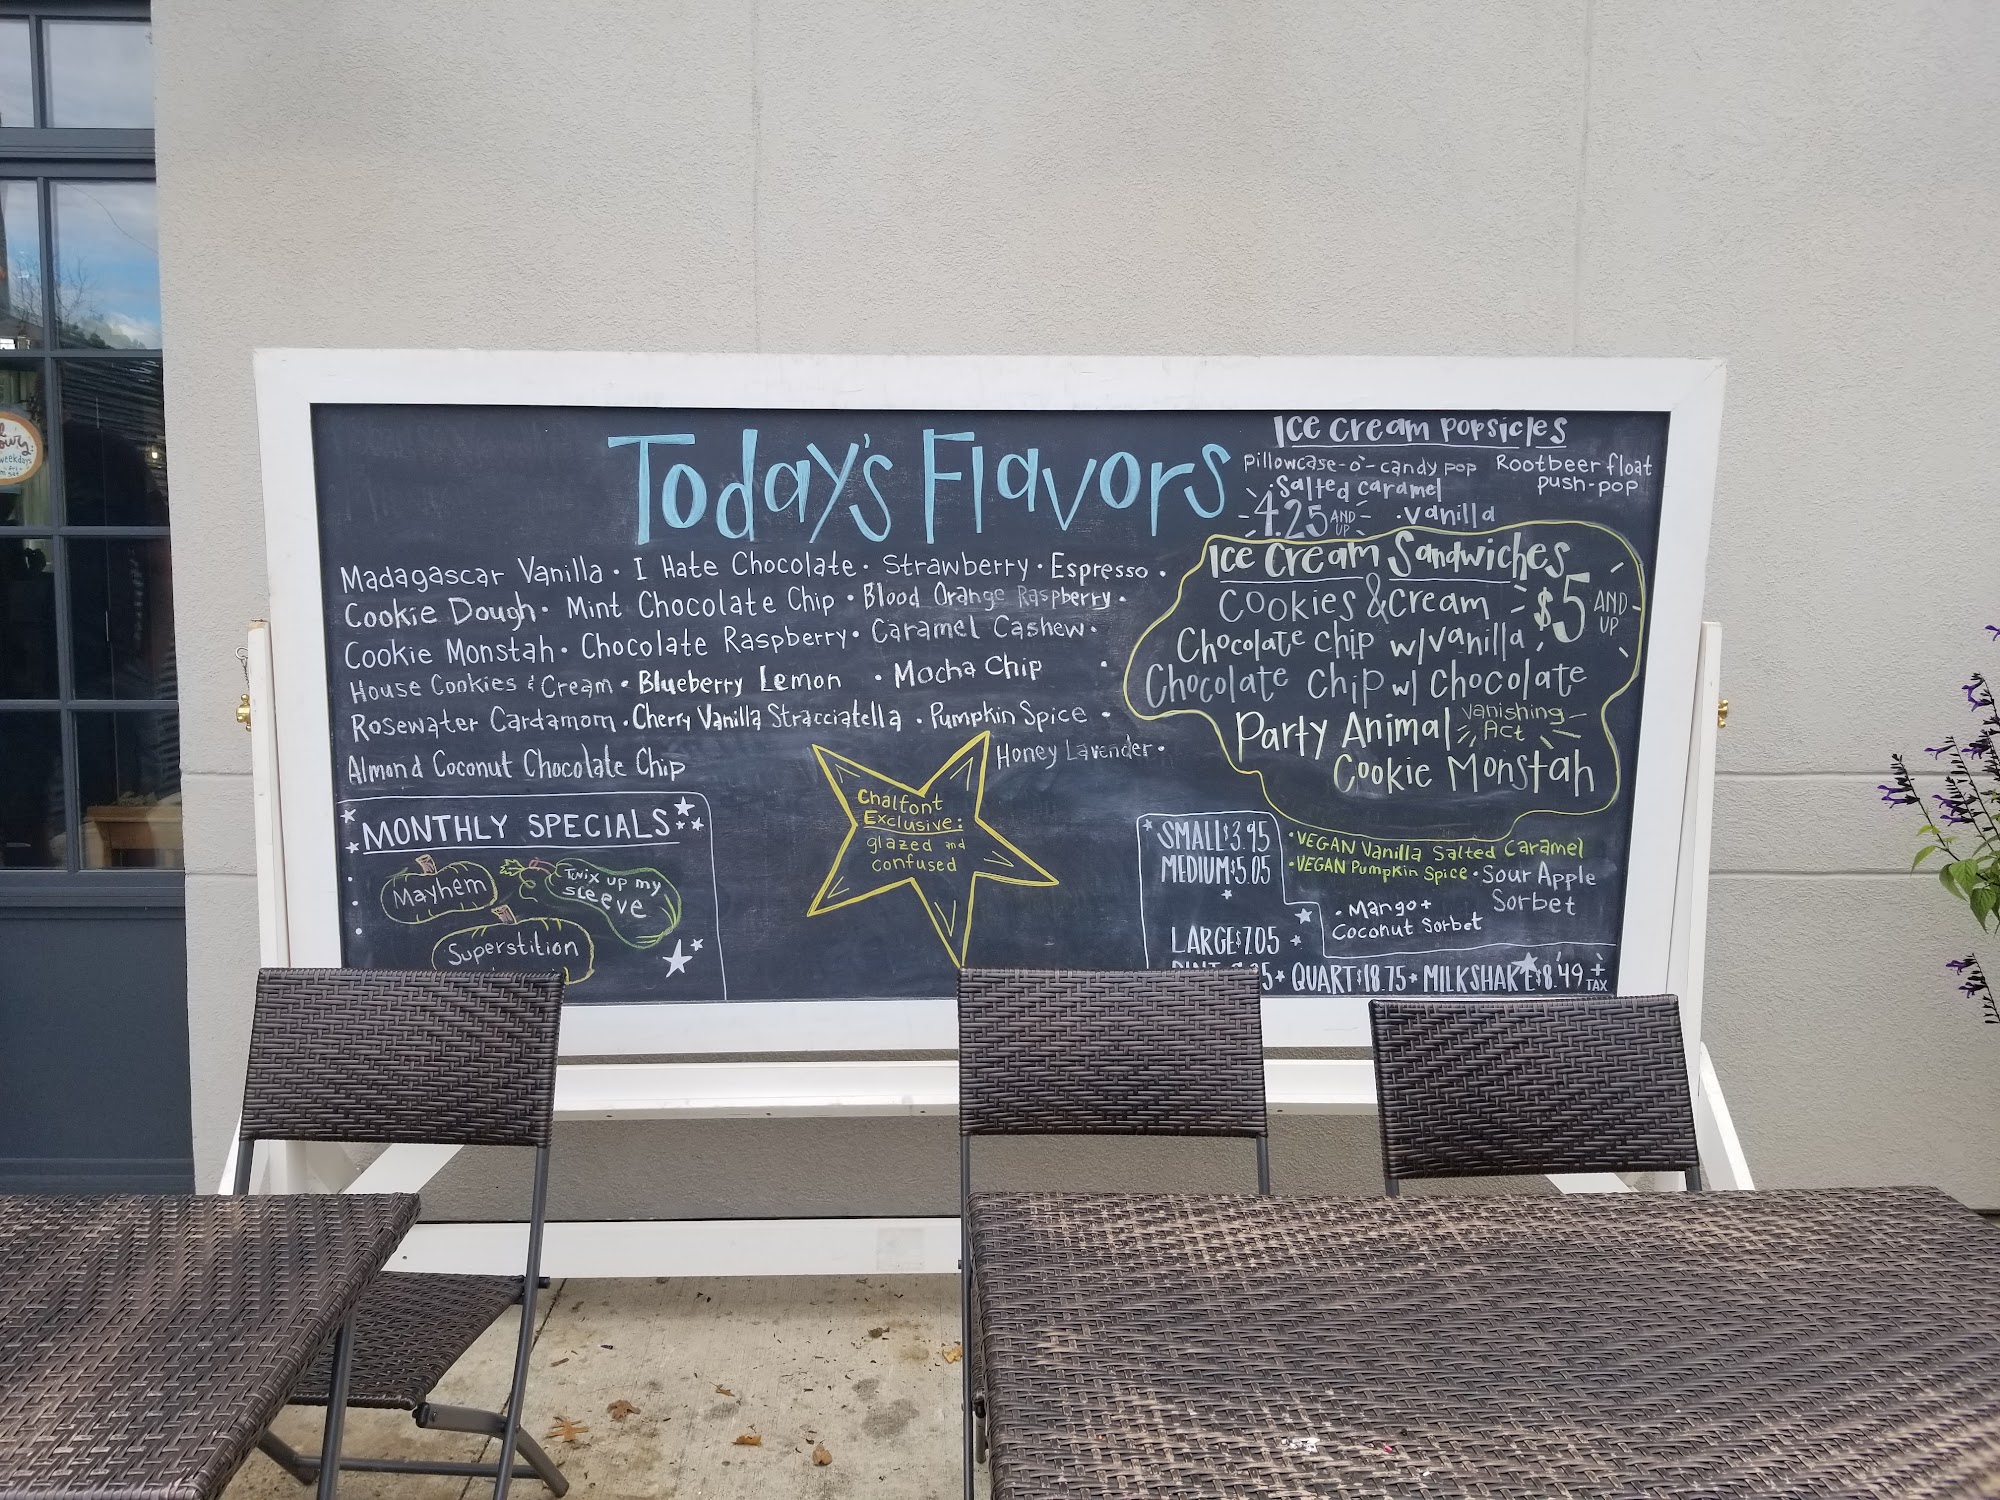 Today's Flavors
Madagascar Vanilla · I Hate Chocolate · Strawberry · Espresso ·
Cookie Dough · Mint Chocolate Chip · Blood Orange Raspberry ·
Cookie Monstah · Chocolate Raspberry · Caramel Cashew ·
House Cookies & Cream · Blueberry Lemon · Mocha Chip ·
Rosewater Cardamom · Cherry Vanilla Stracciatella · Pumpkin Spice ·
Honey Lavender ·
Almond Coconut Chocolate Chip
MONTHLY SPECIALS
Mayhem
Twix up my
sleeve
Superstition
Chalfont
Exclusive:
glazed and
confused
Ice cream popsicles
Pillowcase-o'-candy pop
Rootbeer float
push-pop
·Salted caramel
4.25 AND UP
·vanilla
Ice Cream Sandwiches
Cookies & Cream
$5 AND UP
Chocolate chip w/ vanilla
Chocolate chip w/ chocolate
Party Animal
Vanishing
Act
Cookie Monstah
SMALL $3.95
MEDIUM $5.05
LARGE $7.05
·VEGAN Vanilla Salted Caramel
·VEGAN Pumpkin Spice · Sour Apple
Sorbet
· Mango +
Coconut Sorbet
QUART $18.75 * MILKSHAKE $8.49 + TAX
weekdays